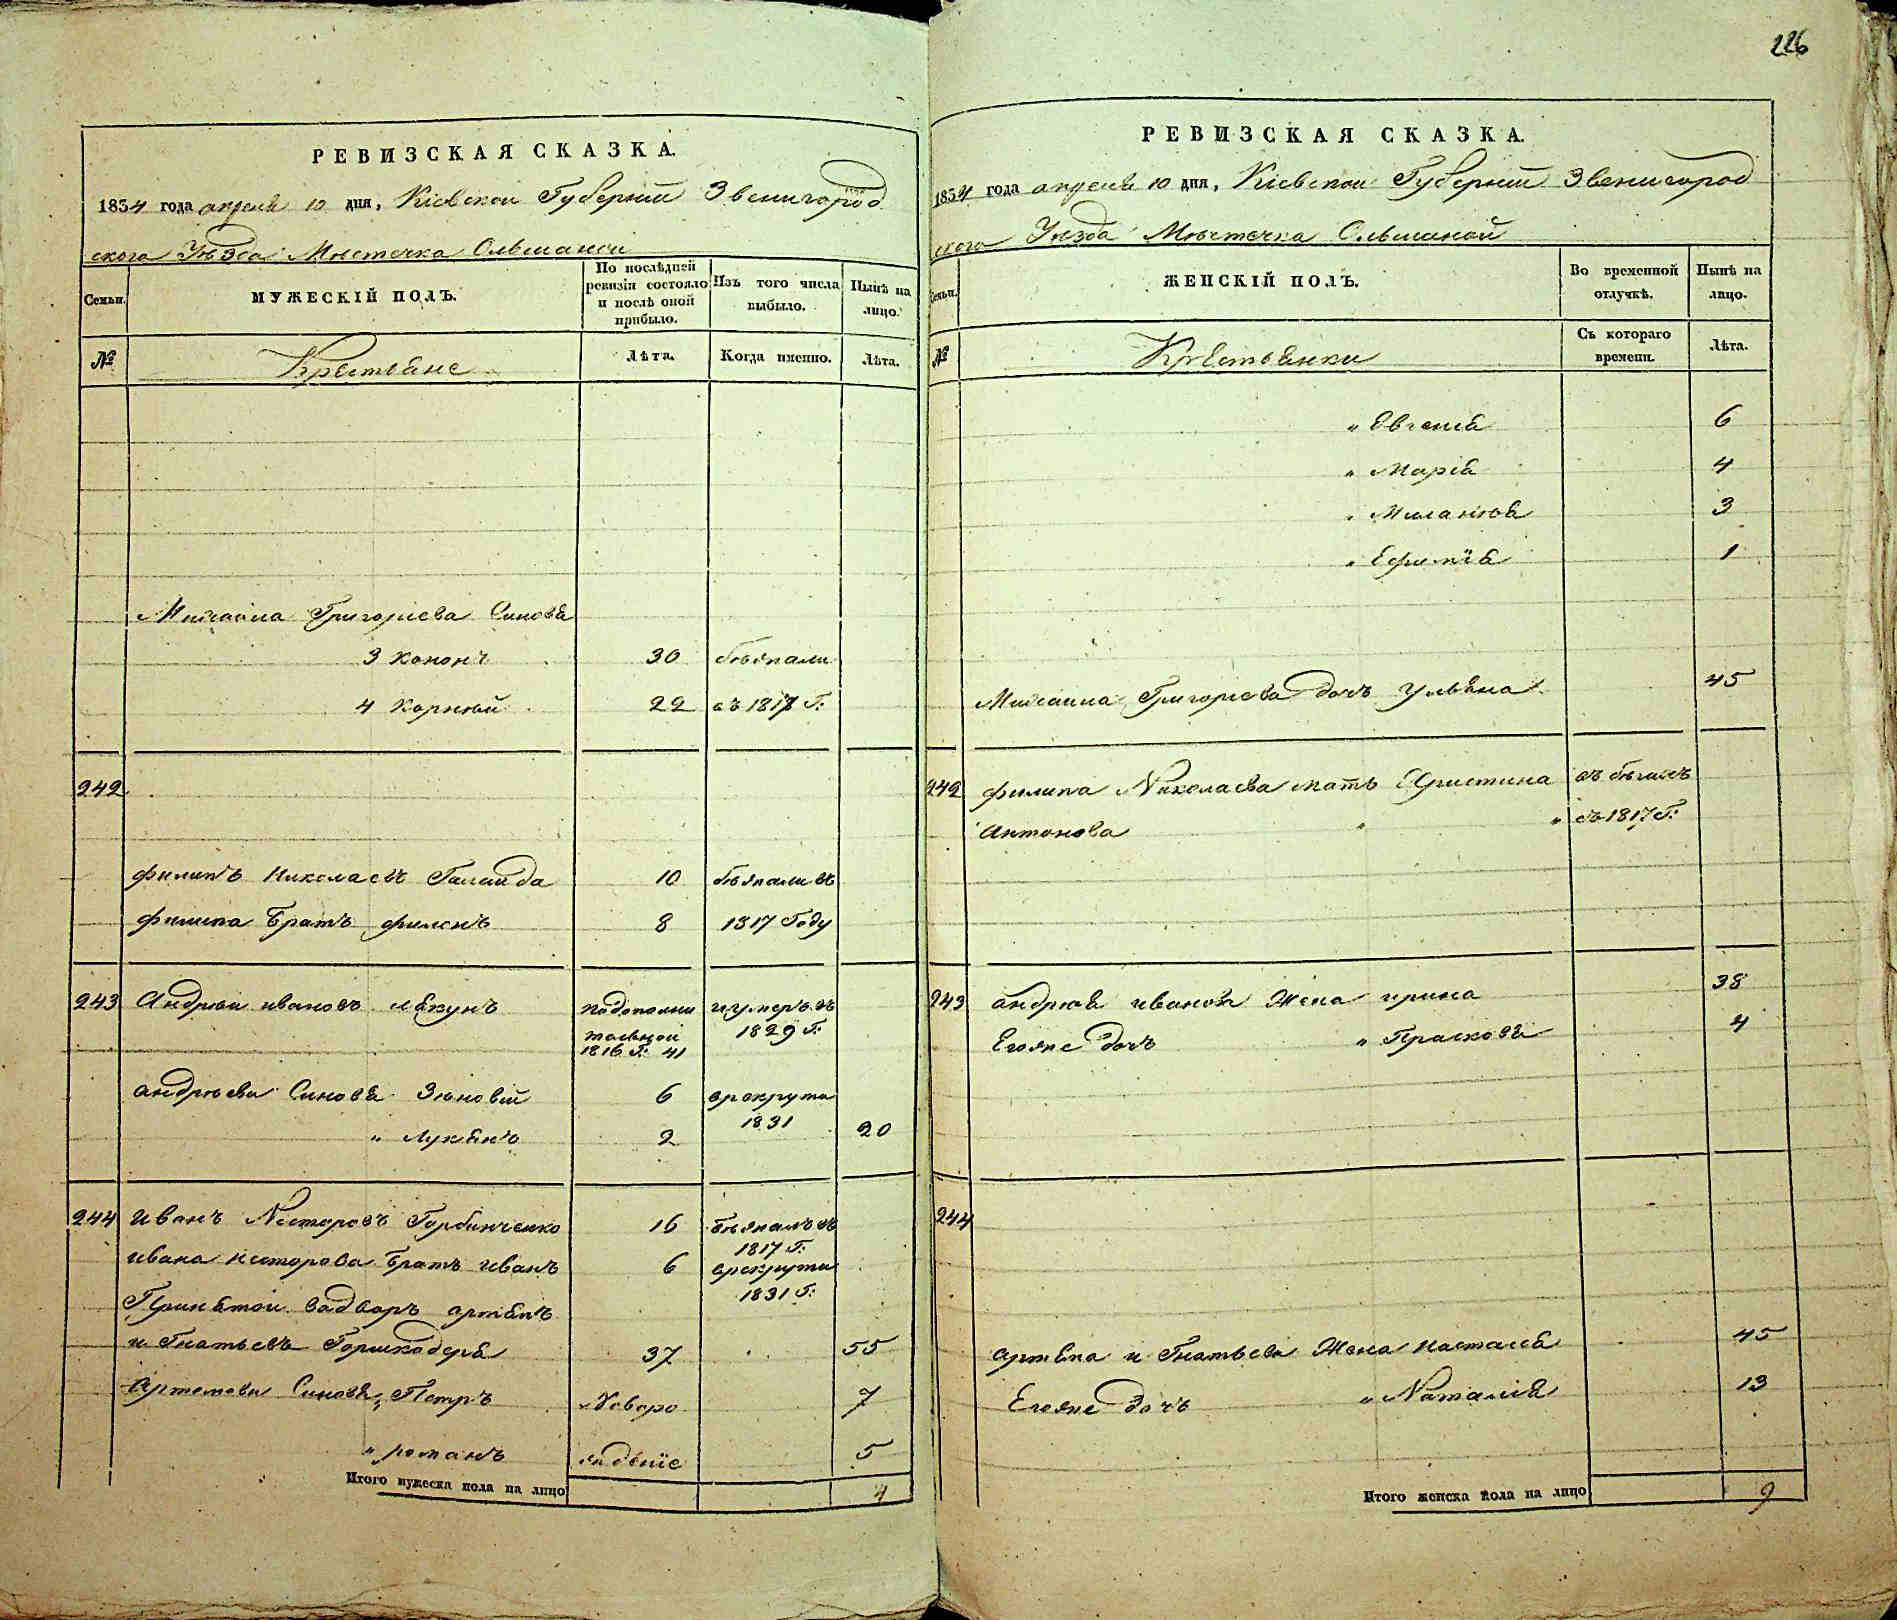 226
РЕВИЗСКАЯ СКАЗКА.
1834 года апреля 10 дня, Кіевской Губерніи Звенигород
ского Уѣзда Мѣстечка Ольшаной
Семьи.
МУЖЕСКІЙ ПОЛЪ.
По послѣдней ревизіи состояло и послѣ оной прибыло.
Изъ того числа выбыло.
Нынѣ на лицо.
№
Крестьяне
Лѣта.
Когда именно.
Лѣта.
Михаила Григоріева Синовя
3 Кононъ 30 бѣжали
4 Корнѣй 22 въ 1817 Г:
242
Филипъ Николаевъ Галайда 10 бѣжали въ
Филипа Братъ Филонъ 8 1817 Году
243 Андрѣй Ивановъ Лякунъ
по дополни
тельной
1816 Г: 41
и умеръ въ
1829 Г:
Андрѣевы Синовя Зѣновій 6 врекруты
1831
" Лукянъ 2 20
244 Иванъ Несторовъ Горбинченко 16 бѣжалъ въ
1817 Г:
Ивана Несторова Братъ Иванъ 6 врекруты
1831 Г:
Принятой Вадворъ Артемъ
и Гнатьевъ Горшкодеря 37 55
Артемовы Синовя, Петръ Новоро 7
" Романъ жденіе 5
Итого мужеска пола на лицо 4
РЕВИЗСКАЯ СКАЗКА.
1834 года апреля 10 дня, Кіевской Губерніи Звенигород
ского Уѣзда Мѣстечка Ольшаной
Семьи.
ЖЕНСКІЙ ПОЛЪ.
Во временной отлучкѣ.
Нынѣ на лицо.
№
Крестьянки
Съ котораго времени.
Лѣта.
" Евгенія 6
" Марія 4
" Миланія 3
" Ефимія 1
Михаила Григоріева дочь Ульяна 45
242 Филипа Николаева мать Христина въ бѣгахъ
Антонова " " съ 1817 Г:
243 Андрѣя Иванова Жена Ирина 38
Егожне дочь " Прасковя 4
244
Артема и Гнатьева Жена Настасія 45
Егожне дочь " Наталія 13
Итого женска пола на лицо 9